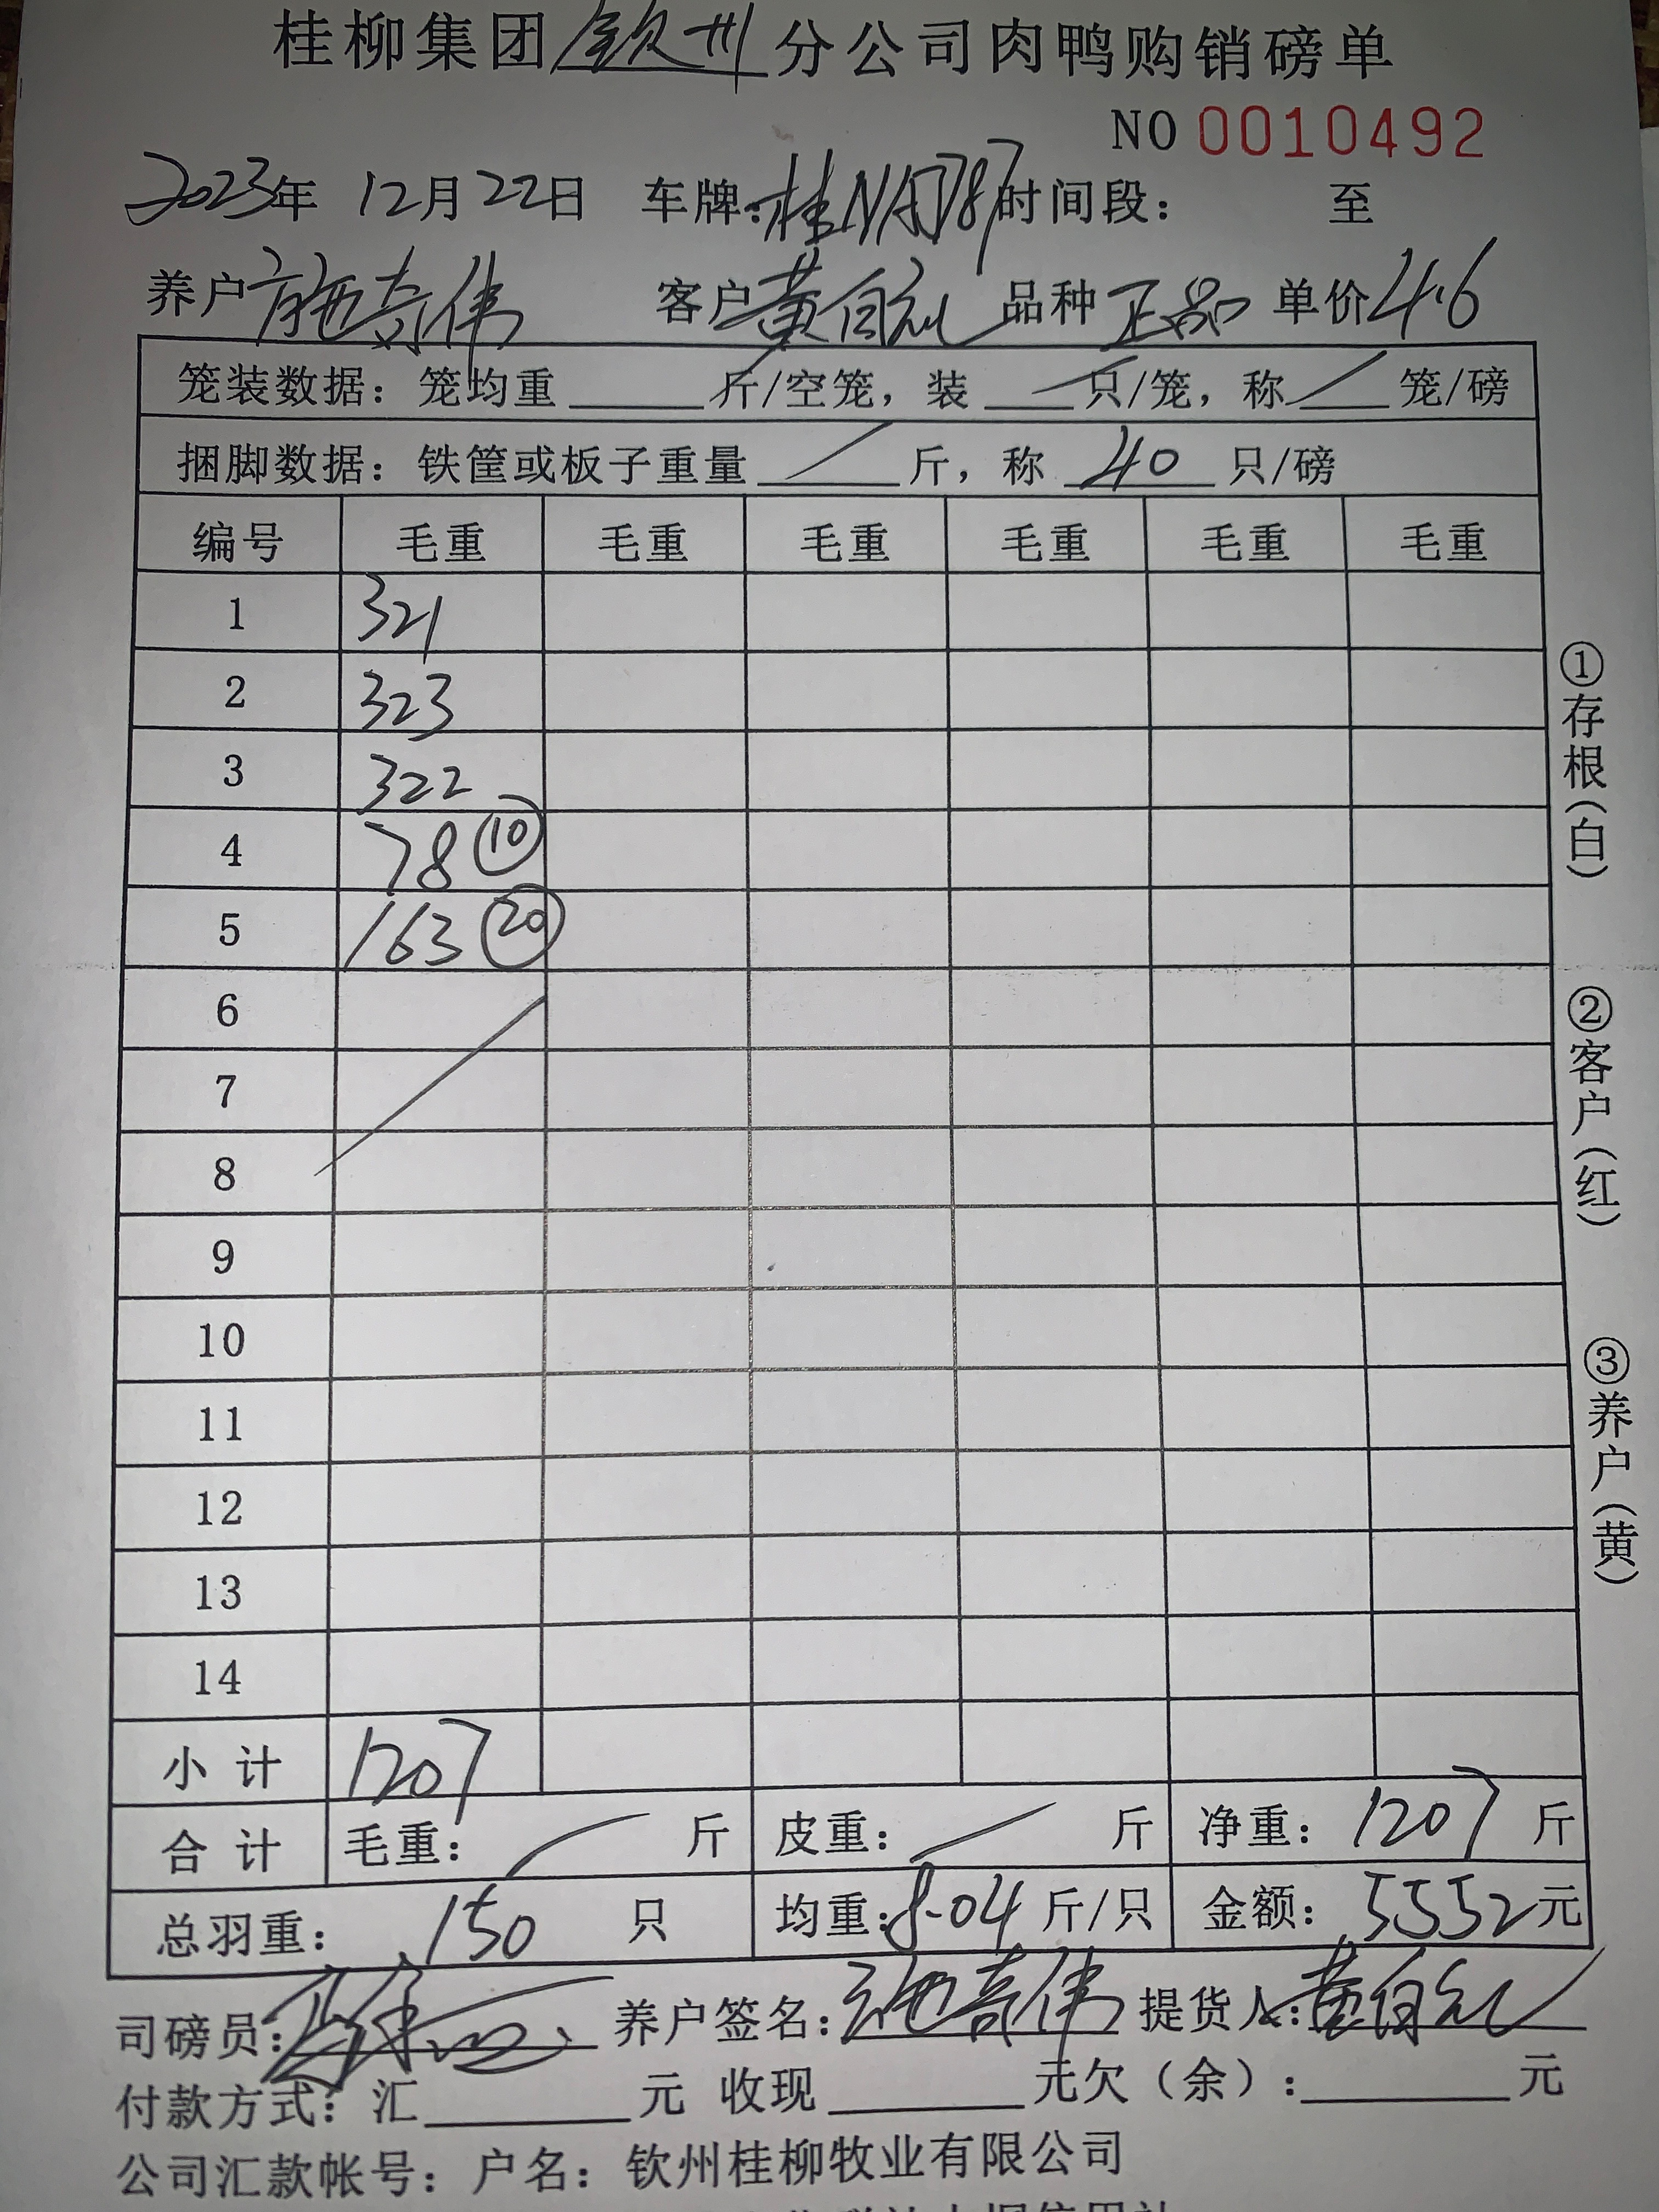 桂柳集团钦州分公司肉鸭购销磅单
NO 0010492
2023年 12月22日 车牌: 时间段: 至
养户施奇伟 客户黄自 品种正品 单价4.6
笼装数据: 笼均重 斤/空笼, 装 只/笼, 称 笼/磅
捆脚数据: 铁筐或板子重量 斤, 称 40 只/磅
编号 毛重 毛重 毛重 毛重 毛重 毛重
1 321
2 323
3 322
4 78 ⑩
5 163 ⑳
6
7
8
9
10
11
12
13
14
小计 1207
合计 毛重: 斤 皮重: 斤 净重: 1207 斤
总羽重: 150 只 均重: 8.04 斤/只 金额: 5552元
司磅员: 养户签名: 施奇伟 提货人: 黄自
付款方式: 汇 元 收现 元欠(余): 元
公司汇款帐号: 户名: 钦州桂柳牧业有限公司
①存根(白)
②客户(红)
③养户(黄)